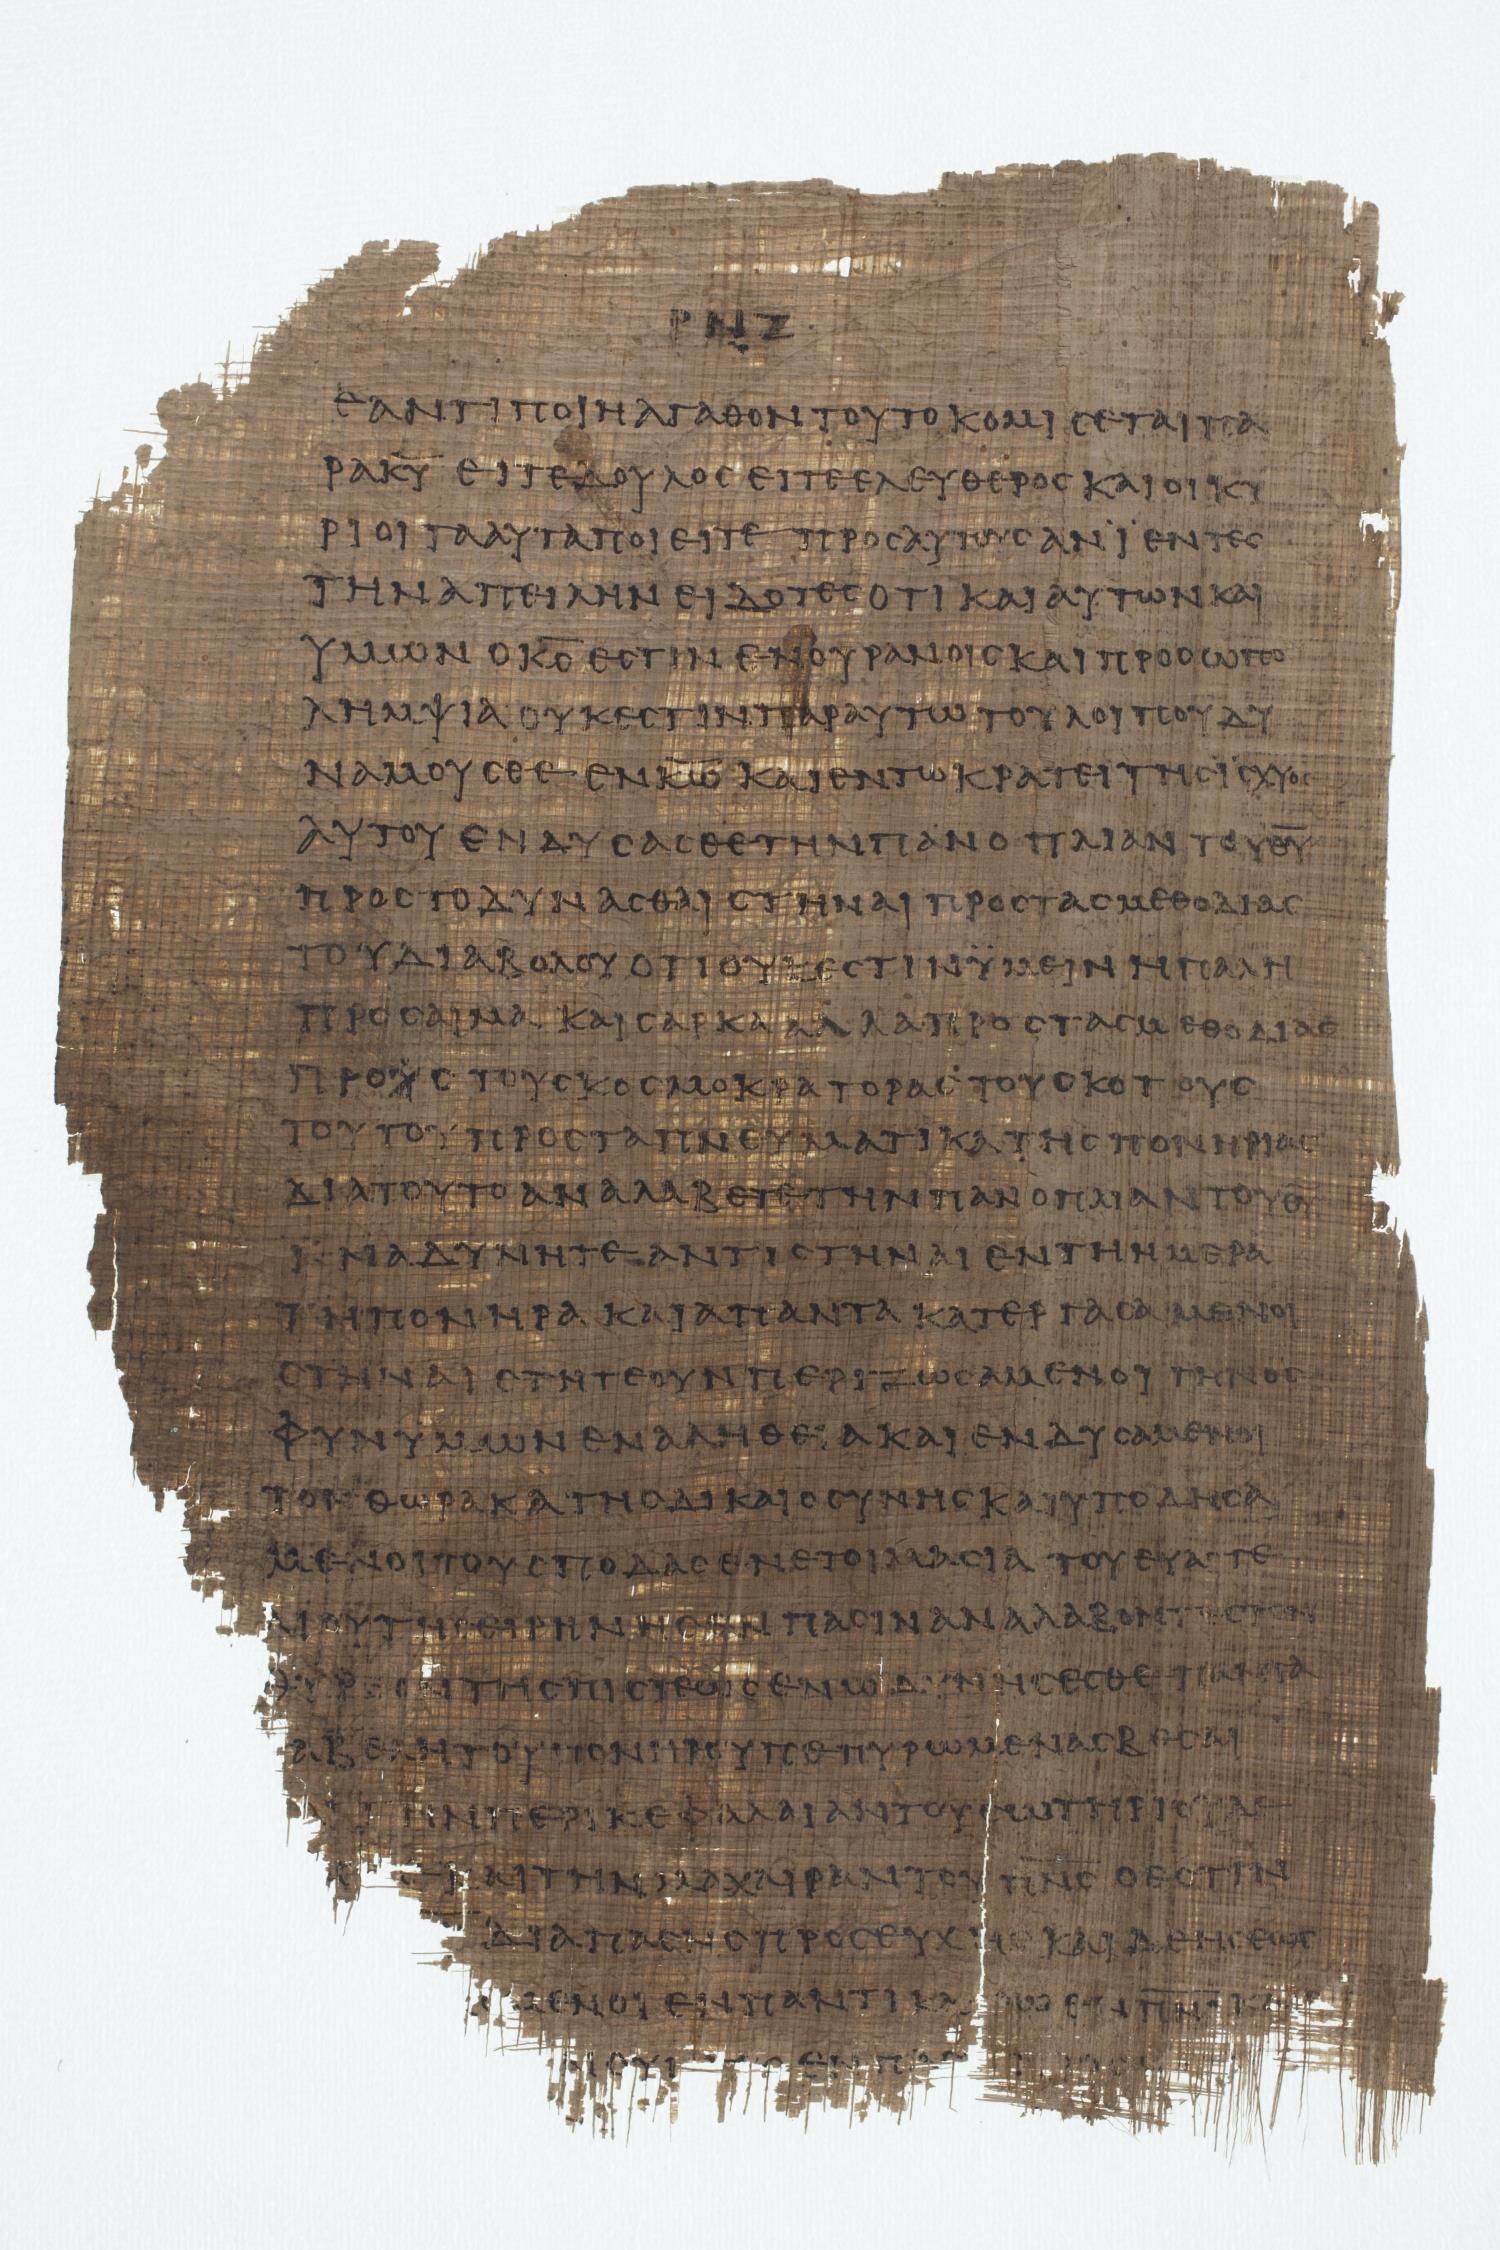 ΡΝΖ
ΕΑΝΤΙΠΟΙΗΑΓΑΘΟΝΤΟΥΤΟΚΟΜΙCΕΤΑΙΠΑ
ΡΑΚ̅Υ̅ ΕΙΤΕΔΟΥΛΟCΕΙΤΕΕΛΕΥΘΕΡΟCΚΑΙΟΙΚΥ
ΡΙΟΙΤΑΑΥΤΑΠΟΙΕΙΤΕ ΠΡΟCΑΥΤΟΥCΑΝΪΕΝΤΕC
ΤΗΝΑΠΕΙΛΗΝΕΙΔΟΤΕCΟΤΙΚΑΙΑΥΤΩΝΚΑΙ
ΥΜΩΝΟΚ̅C̅ΕCΤΙΝΕΝΟΥΡΑΝΟΙCΚΑΙΠΡΟCΩΠΟ
ΛΗΜΨΙΑΟΥΚΕCΤΙΝΠΑΡΑΥΤΩΤΟΥΛΟΙΠΟΥΔΥ
ΝΑΜΟΥCΘΕΕΝΚ̅Ω̅ΚΑΙΕΝΤΩΚΡΑΤΕΙΤΗCΪCΧΥΟC
ΑΥΤΟΥΕΝΔΥCΑCΘΕΤΗΝΠΑΝΟΠΛΙΑΝΤΟΥΘ̅Υ̅
ΠΡΟCΤΟΔΥΝΑCΘΑΙCΤΗΝΑΙΠΡΟCΤΑCΜΕΘΟΔΙΑC
ΤΟΥΔΙΑΒΟΛΟΥΟΤΙΟΥΚΕCΤΙΝΫΜΕΙΝΗΠΑΛΗ
ΠΡΟCΑΙΜΑΚΑΙCΑΡΚΑΑΛΛΑΠΡΟCΤΑCΜΕΘΟΔΙΑC
ΠΡΟC ΤΟΥCΚΟCΜΟΚΡΑΤΟΡΑCΤΟΥCΚΟΤΟΥC
ΤΟΥΤΟΥΠΡΟCΤΑΠΝΕΥΜΑΤΙΚΑΤΗCΠΟΝΗΡΙΑC
ΔΙΑΤΟΥΤΟΑΝΑΛΑΒΕΤΕΤΗΝΠΑΝΟΠΛΙΑΝΤΟΥΘ̅Υ̅
ΙΝΑΔΥΝΗΤΕΑΝΤΙCΤΗΝΑΙΕΝΤΗΗΜΕΡΑ
ΤΗΠΟΝΗΡΑΚΑΙΑΠΑΝΤΑΚΑΤΕΡΓΑCΑΜΕΝΟΙ
CΤΗΝΑΙCΤΗΤΕΟΥΝΠΕΡΙΖΩCΑΜΕΝΟΙΤΗΝΟC
ΦΥΝΥΜΩΝΕΝΑΛΗΘΕΙΑΚΑΙΕΝΔΥCΑΜΕΝΟΙ
ΤΟΝΘΩΡΑΚΑΤΗCΔΙΚΑΙΟCΥΝΗCΚΑΙΥΠΟΔΗCΑ
ΜΕΝΟΙΤΟΥCΠΟΔΑCΕΝΕΤΟΙΜΑCΙΑΤΟΥΕΥΑΓΓΕ
ΛΙΟΥΤΗCΕΙΡΗΝΗCΕΝΠΑCΙΝΑΝΑΛΑΒΟΝΤΕCΤΟΝ
ΘΥΡΕΟΝΤΗCΠΙCΤΕΩCΕΝΩΔΥΝΗCΕCΘΕΠΑΝΤΑ
ΤΑΒΕΛΗΤΟΥΠΟΝΗΡΟΥΠΕΠΥΡΩΜΕΝΑCΒΕCΑΙ
ΤΗΝΠΕΡΙΚΕΦΑΛΑΙΑΝΤΟΥCΩΤΗΡΙΟΥΔΕ
ΑΙΤΗΝΜΑΧΑΙΡΑΝΤΟΥΠ̅Ν̅C̅ΟΕCΤΙΝ
ΔΙΑΠΑCΗCΠΡΟCΕΥΧΗCΚΑΙΔΕΗCΕΩC
ΜΕΝΟΙΕΝΠΑΝΤΙΚΑΙΡΩΕΝΠ̅Ν̅Ι̅